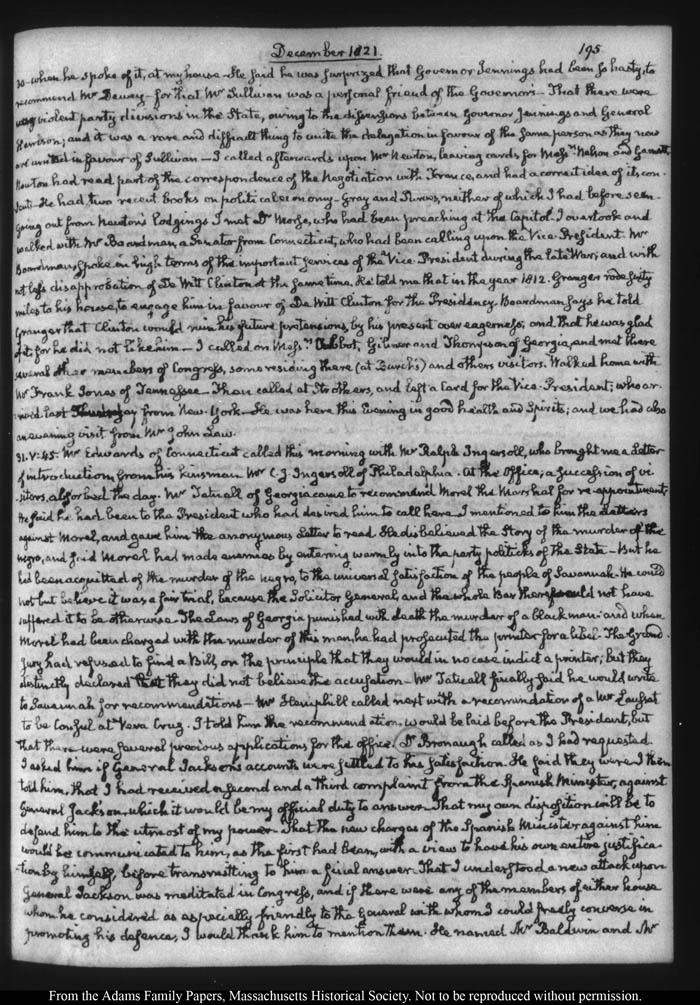 December 1821.
195
so when he spoke of it, at my house. He said he was surprized that Governor Jennings had been so hasty, to
recommend Mr Dewey — for that Mr Sullivan was a personal friend of the Governor's — That there were
very violent party divisions in the State, owing to the dissensions between Governor Jennings and General
Harrison; and it was a rare and difficult thing to unite the delegation in favour of the same person as they now
are united in favour of Sullivan — I called afterwards upon Mr Newton, leaving cards for Messrs Nelson and Garnett
Newton had read part of the correspondence of the Negotiation with France, and had a correct idea of its con-
tents. He had two recent books on political economy — Gray and neither of which I had before seen.
Going out from Newton's lodgings I met Dr Morse, who had been preaching at the Capitol. I overtook and
walked with Mr Boardman, a Senator from Connecticut, who had been calling upon the Vice-President. Mr
Boardman spoke in high terms of the important services of the Vice President during the late War; and with
not less disapprobation of De Witt Clinton at the same time. He told me that in the year 1812. Granger rode sixty
miles to his house, to engage him in favour of De Witt Clinton for the Presidency. Boardman says he told
Granger that Clinton would ruin his future pretensions, by his present over eagerness, and that he was glad
of it for he did not like him — I called on Messrs Abbot, Gilmer and Thompson of Georgia, and met there
several other members of Congress, some residing there (at Burch's) and others visitors. Walked home with
Mr Frank Jones of Tennessee — Then called at Strothers, and left a Card for the Vice-President; who ar-
rived last from New-York — He was here this Evening in good health and Spirits; and we had also
an evening visit from Mr John Law.
31. V:45. Mr Edwards of Connecticut called this morning with Mr Ralph Ingersoll, who brought me a Letter
of introduction, from his kinsman Mr C. J. Ingersoll of Philadelphia. At the Office, a succession of vi-
sitors, absorbed the day. Mr Tatnall of Georgia came to recommend Morel the Marshal for re-appointment,
He said he had been to the President who had desired him to call here. I mentioned to him the Letters
against Morel, and gave him the anonymous Letter to read. He disbelieved the Story of the murder of the
negro, and said Morel had made enemies by entering warmly into the party politicks of the State — But he
had been acquitted of the murder of the negro, to the universal satisfaction of the people of Savannah. He could
not but believe it was a fair trial, because the Solicitor General, and the whole Bar there would not have
suffered it to be otherwise. The Laws of Georgia punished with death the murder of a black man: and when
Morel had been charged with the murder of this man, he had prosecuted the printer for a libel. The Grand
Jury had refused to find a Bill, on the principle that they would in no case indict a printer; but they
distinctly declared that they did not believe the accusation — Mr Tatnall finally said he would write
to Savannah for recommendations — Mr Hemphill called next with a recommendation of a Mr Laussat
to be Consul at Vera Cruz. I told him the recommendation would be laid before the President, but
that there were several previous applications for the office. Dr Bronaugh called as I had requested.
I asked him if General Jackson's accounts were settled to his satisfaction. He said they were. I then
told him, that I had received a second and a third complaint from the Spanish Minister, against
General Jackson, which it would be my official duty to answer. That my own disposition will be to
defend him to the utmost of my power. That the new charges of the Spanish Minister against him
would be communicated to him, as the first had been, with a view to have his own entire justifica-
tion by himself, before transmitting to him a final answer. That I understood a new attack upon
General Jackson was meditated in Congress, and if there were any of the members of either house
whom he considered as especially friendly to the General with whom I could freely converse in
promoting his defence, I would thank him to mention them. He named Mr Baldwin and Mr
From the Adams Family Papers, Massachusetts Historical Society. Not to be reproduced without permission.